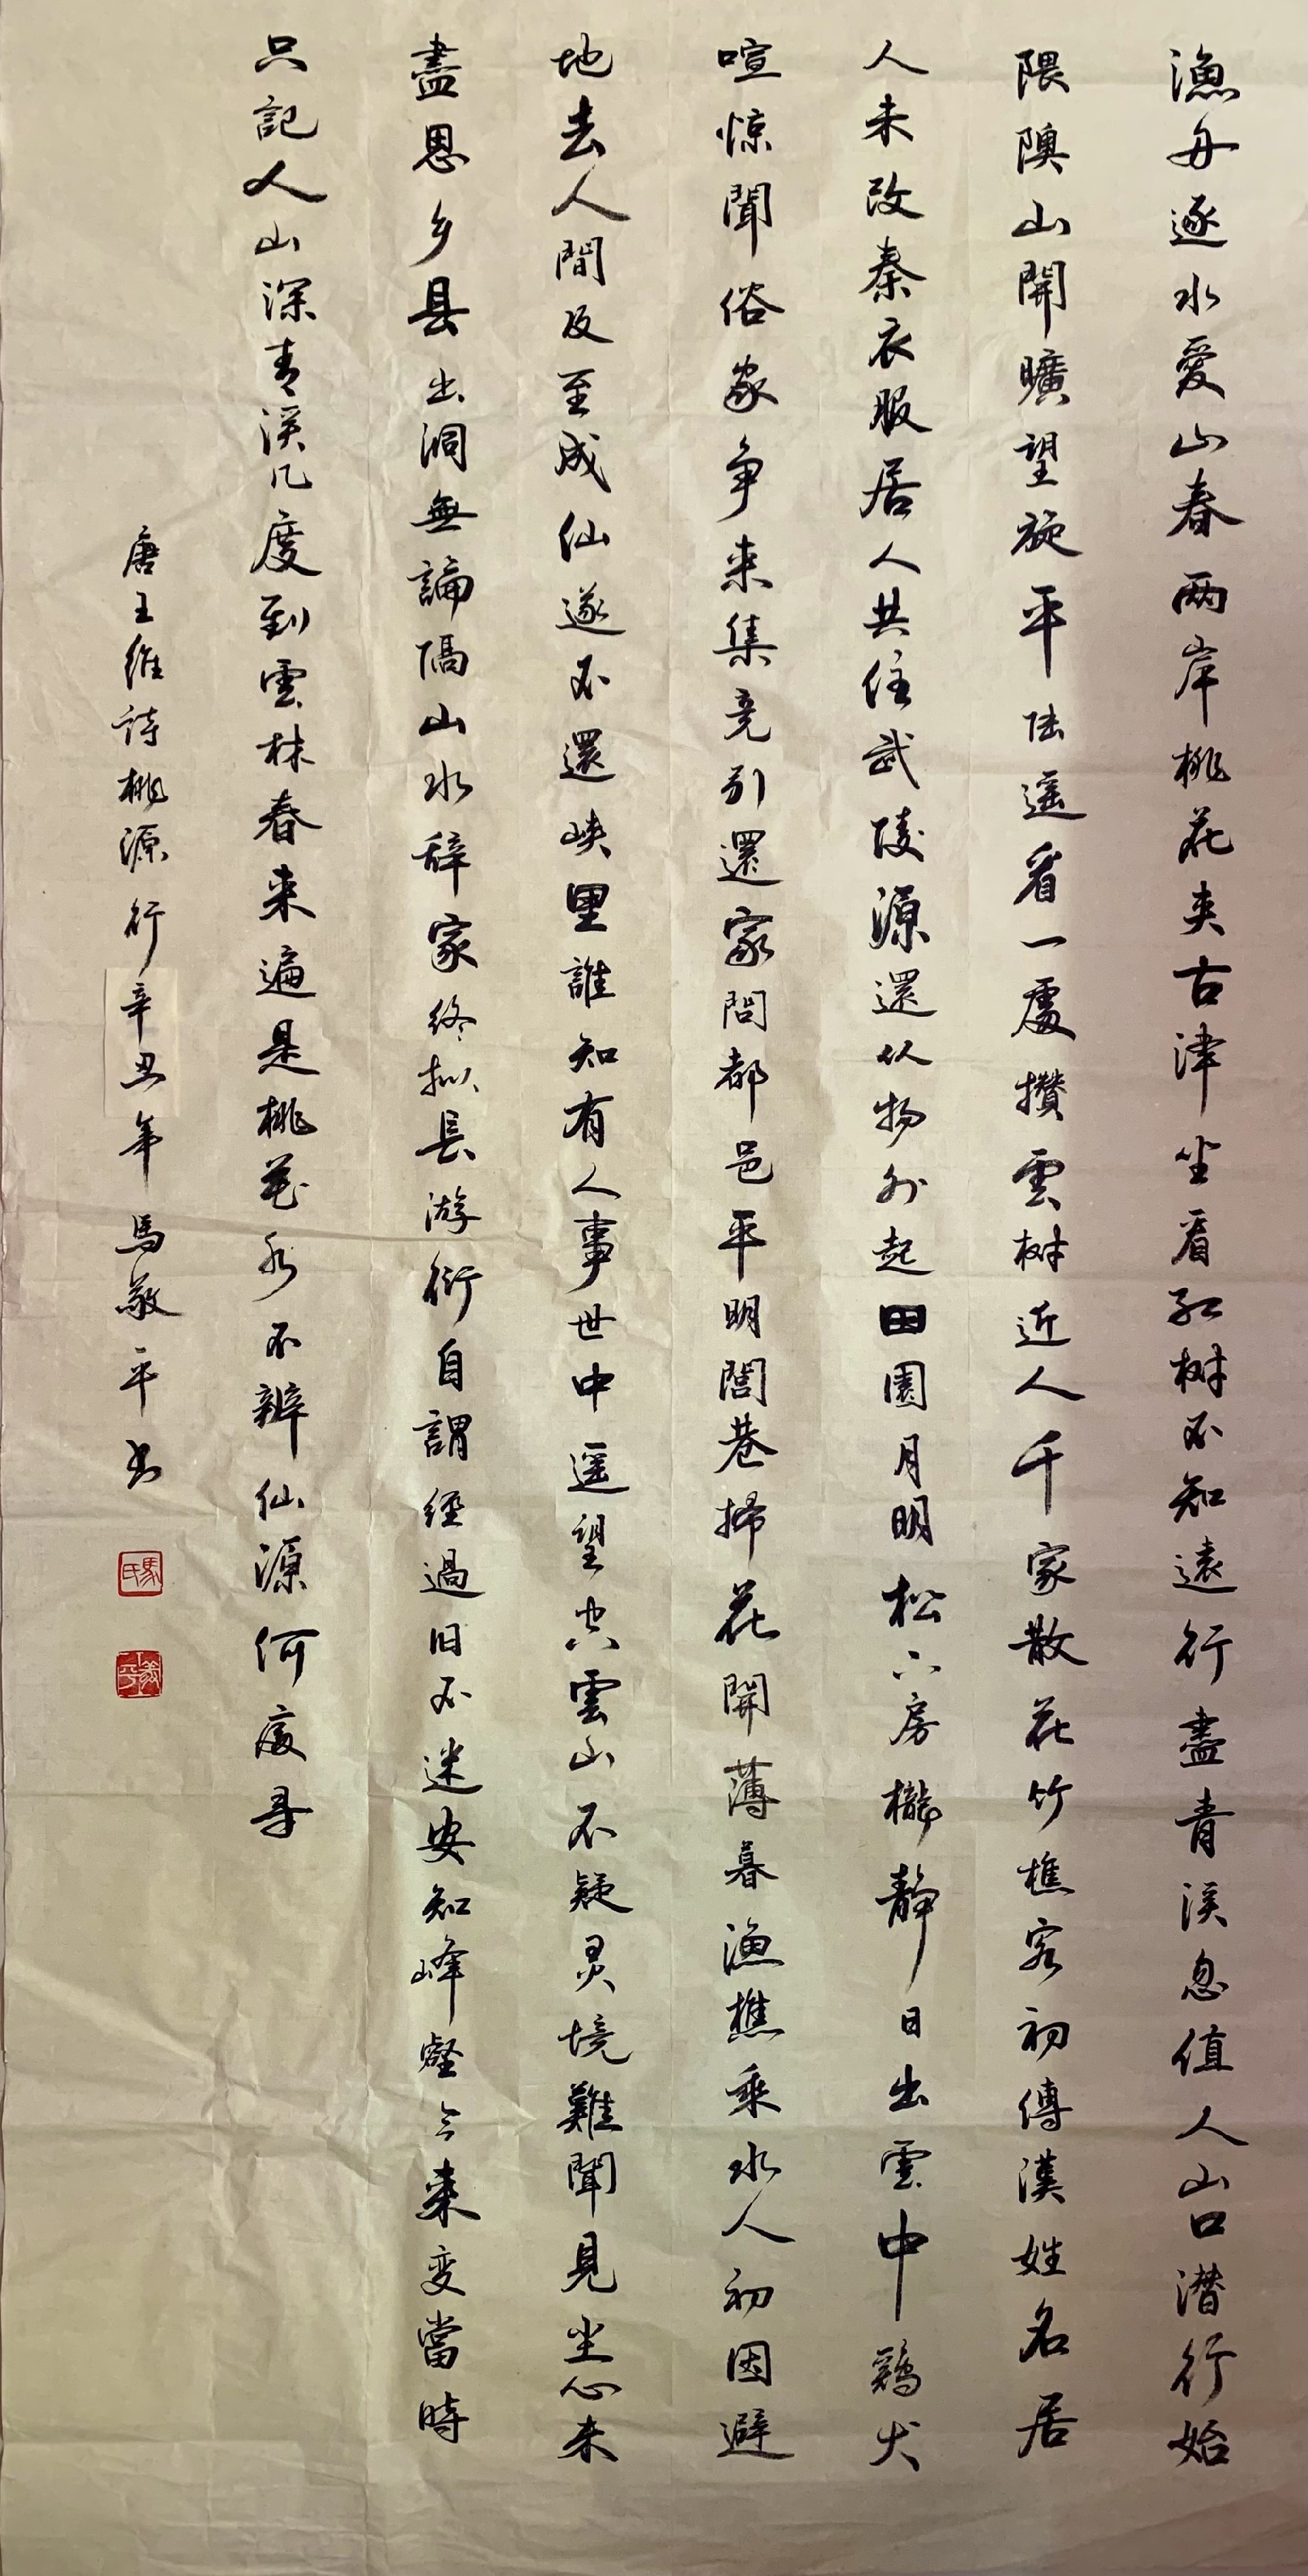 漁舟逐水愛山春兩岸桃花夹古津坐看紅树不知遠行盡青溪忽值人山口潜行始
隈隩山開曠望旋平陆遥看一處攢雲树近人千家散花竹樵客初傳漢姓名居
人未改秦衣服居人共住武陵源還从物外起田園月明松下房櫳静日出雲中鷄犬
喧惊聞俗家争来集竞引還家問都邑平明閭巷掃花開薄暮漁樵乘水人初因避
地去人間及至成仙遂不還峡里誰知有人事世中遥望空雲山不疑灵境難聞見坐心未
盡思乡县出洞無論隔山水辞家终拟長游衍自謂經過旧不迷安知峰壑今来变當時
只記人山深青溪几度到雲林春来遍是桃花水不辨仙源何處寻
唐王维詩桃源行辛丑年馬敬平书
馬氏